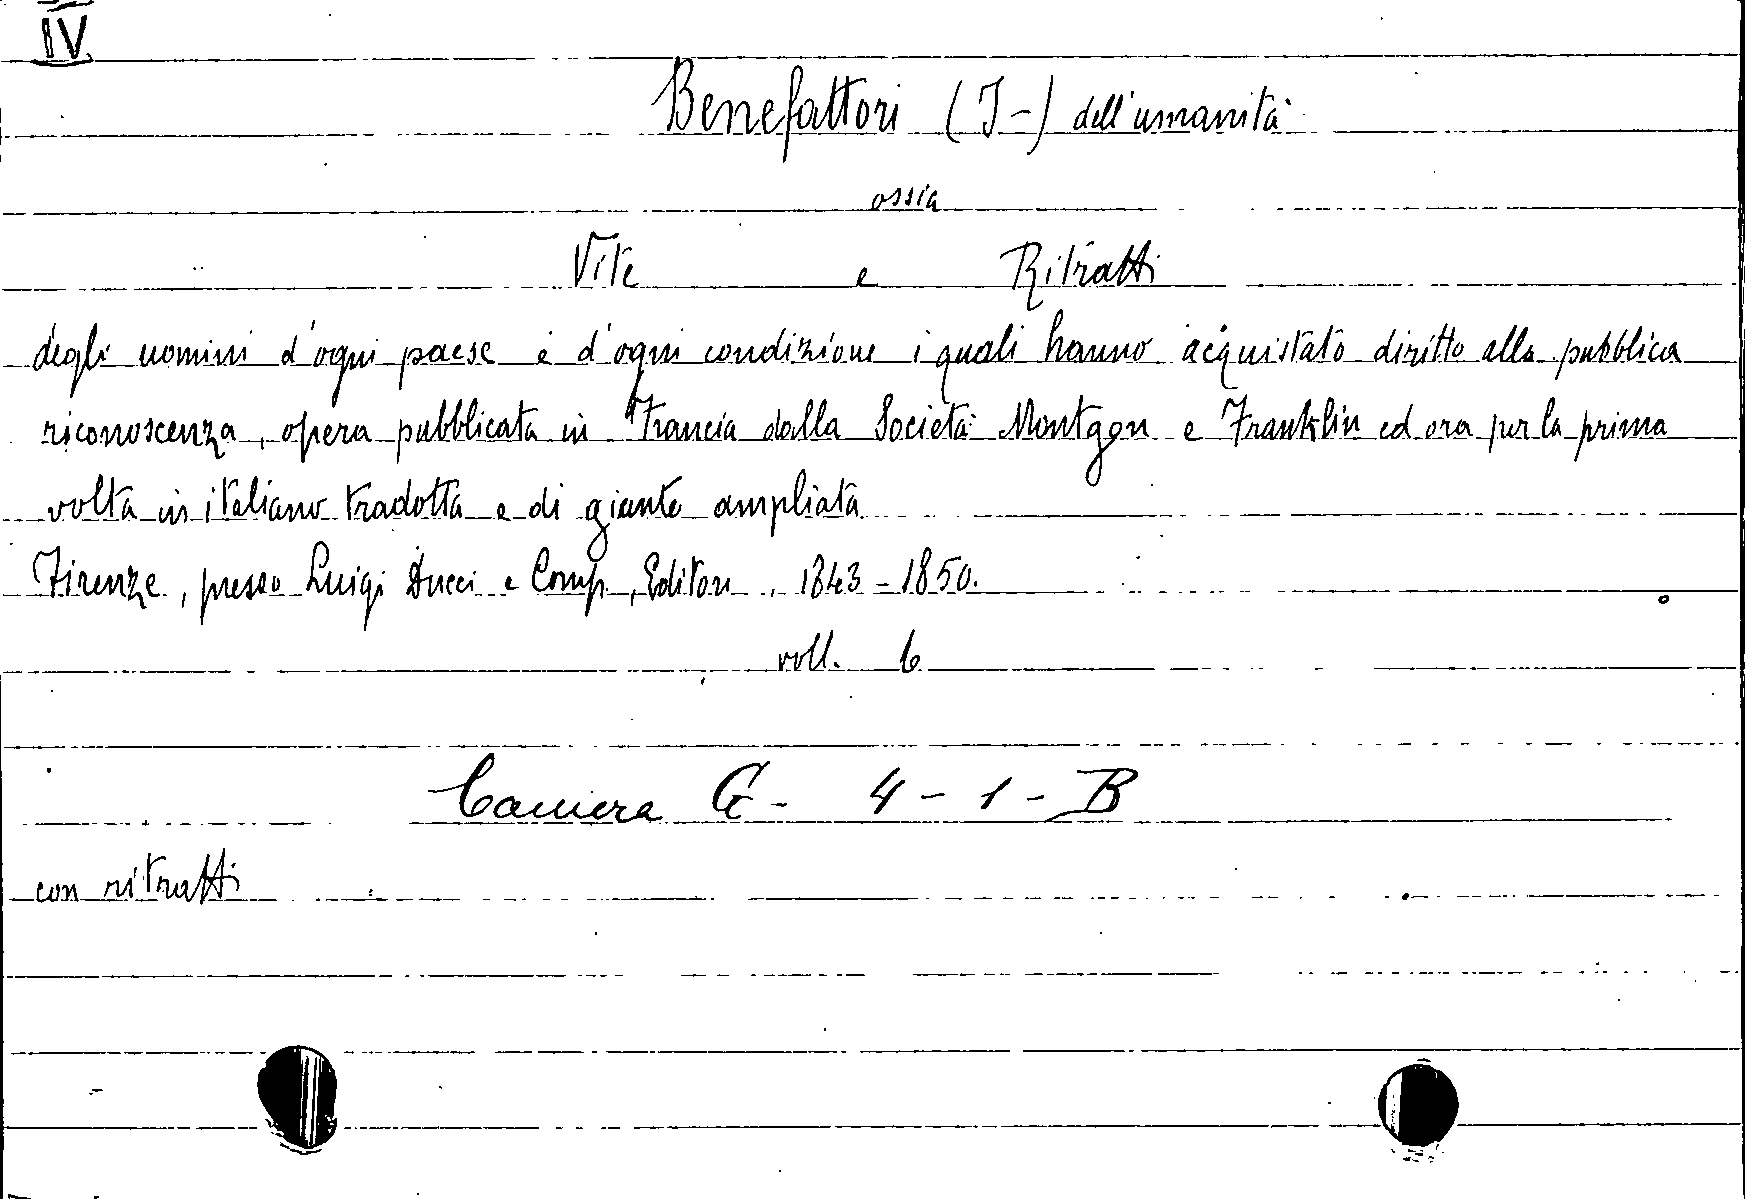 IV
Benefattori (I-) dell'umanità
ossia
Vite e Ritratti
degli uomini d'ogni paese e d'ogni condizione i quali hanno acquistato diritto alla pubblica
riconoscenza, opera pubblicata in Francia dalla Società Montyon e Franklin ed ora per la prima
volta in italiano tradotta e di giunte ampliata
Firenze, presso Luigi Ducci e Comp., Editori, 1843-1850.
voll. 6
Camera G- 4-1-B
con ritratti